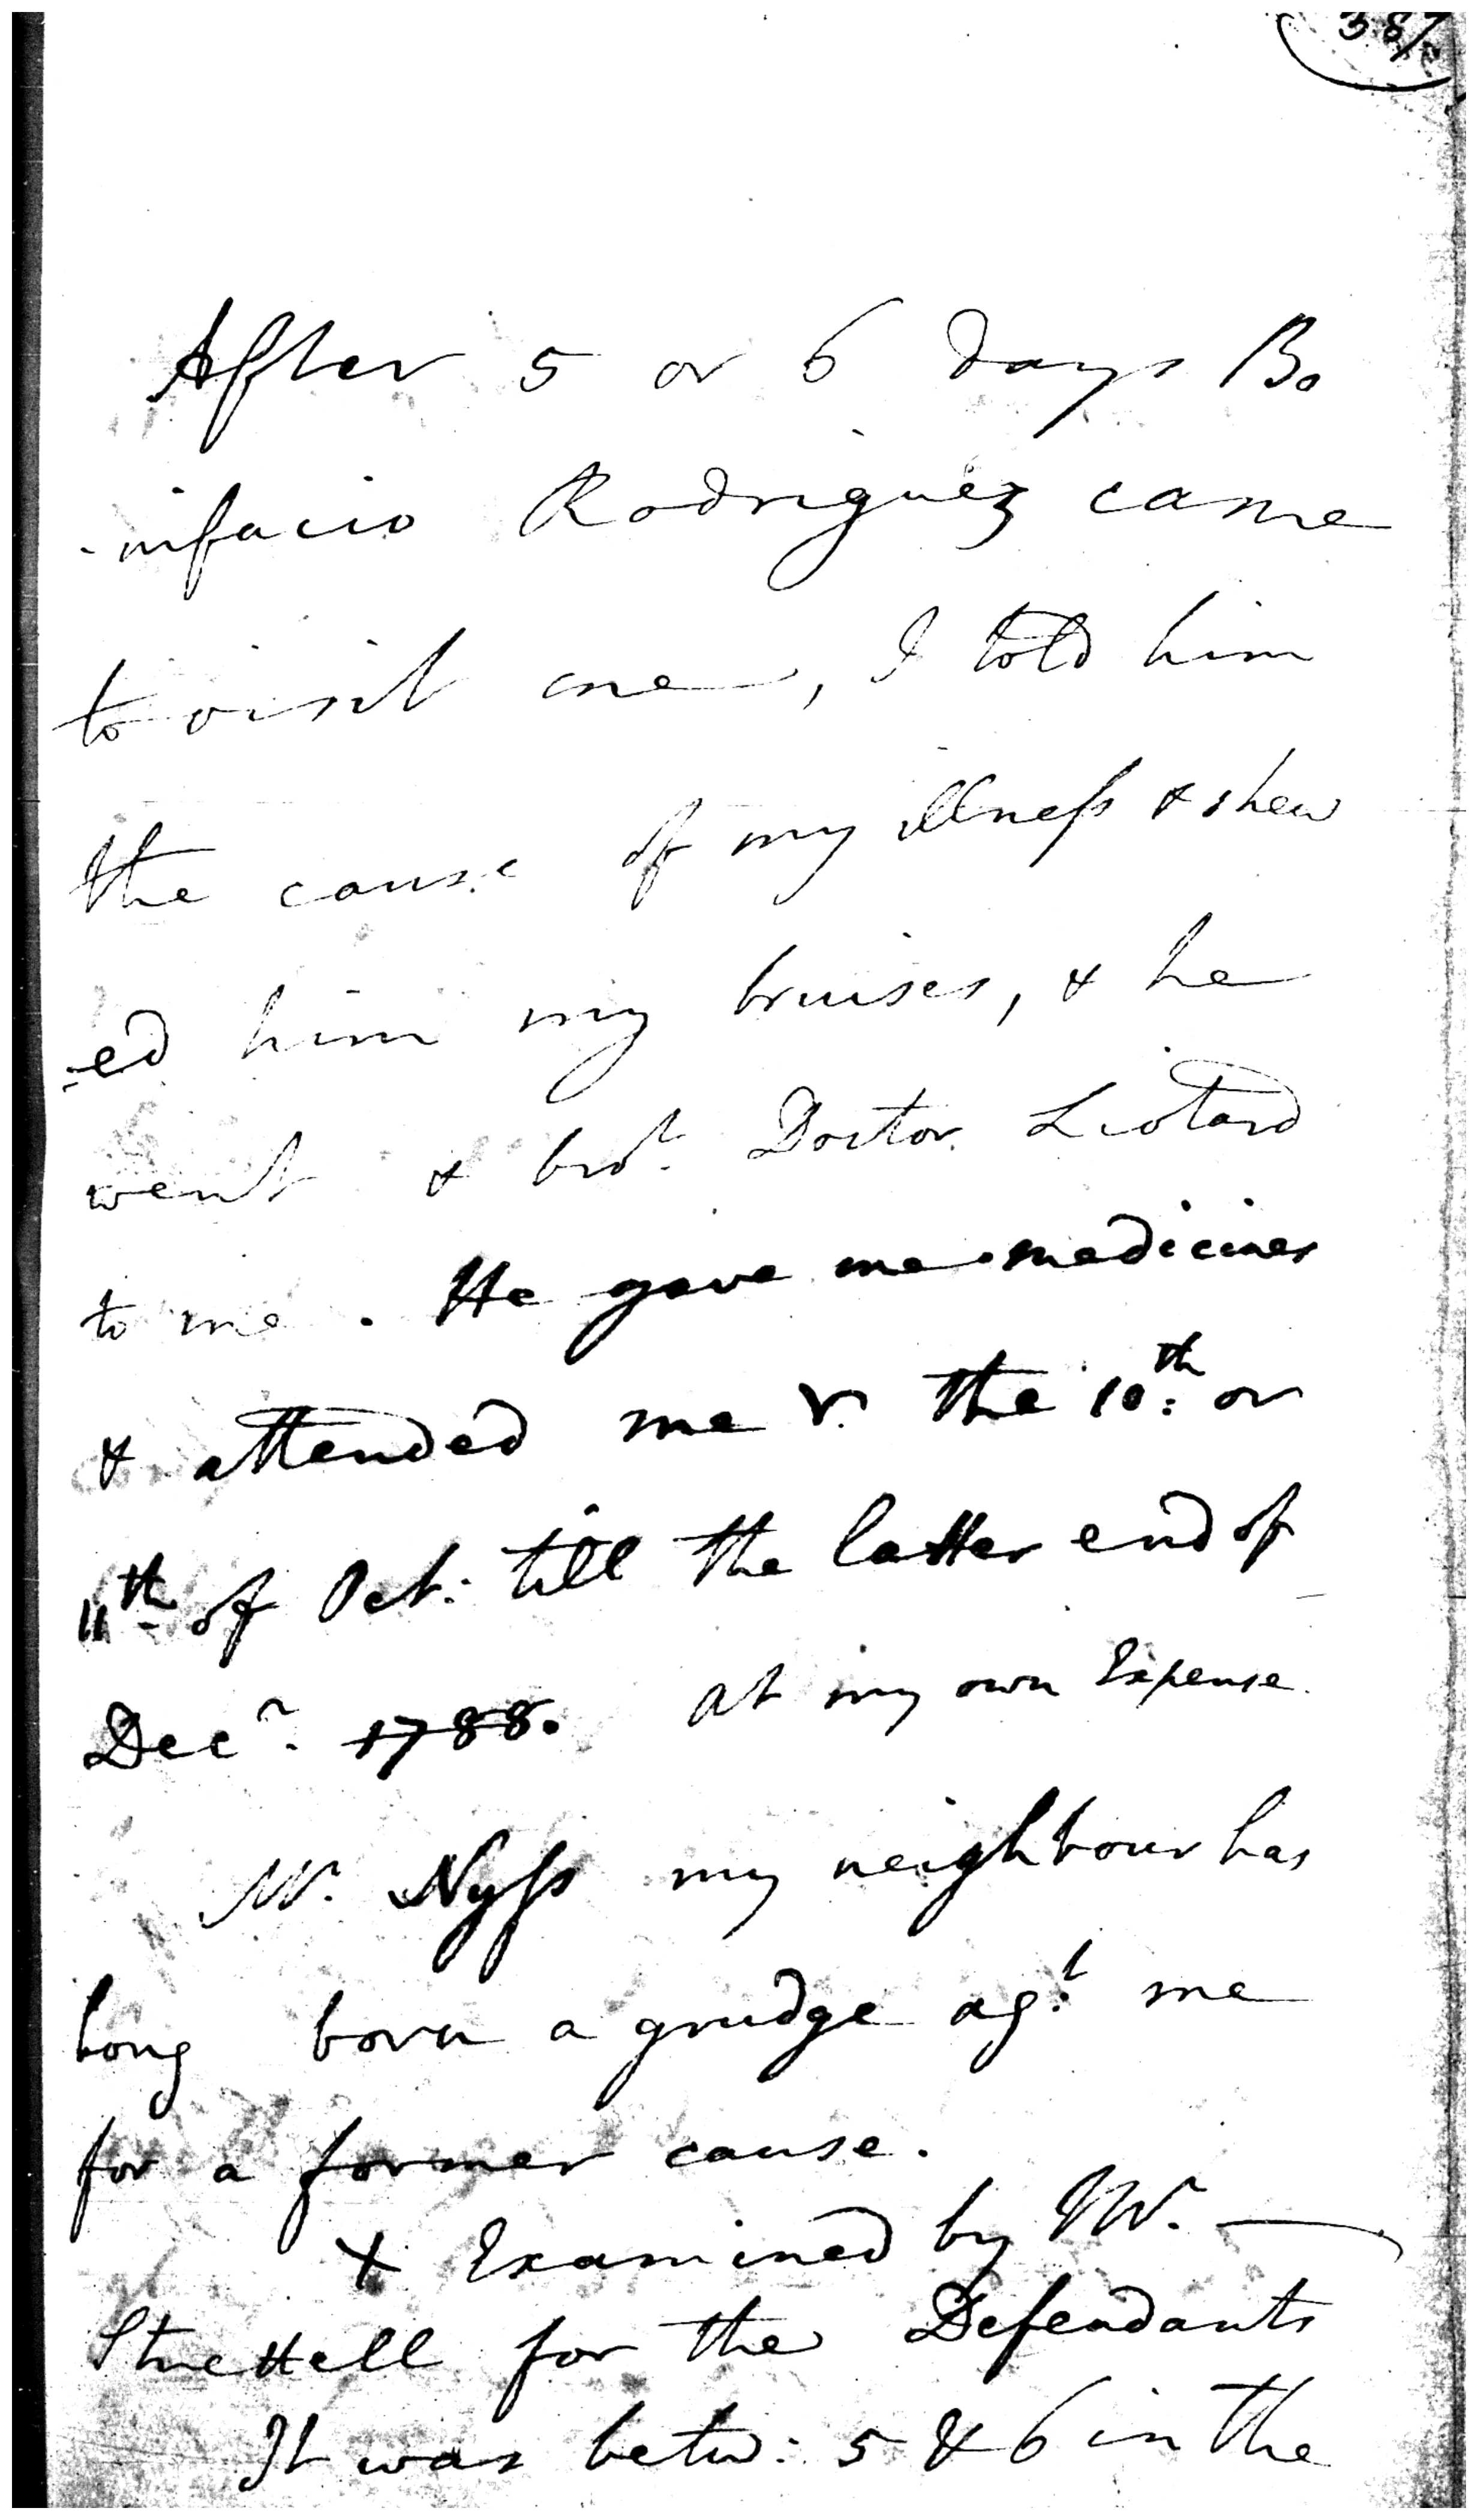 After 5 or 6 days Bo
-nifacio Rodriguez came
to visit me, I told him
the cause of my illness & shew
-ed him my bruises, & he
went & bro.t Doctor Liotard
to me. He gave me medicines
& attended me the 10:th or
11th of Oct: till the latter end of
Dec.r 1788. at my own Expense.
Mr. Nyss my neighbour has
long born a grudge ag.t me
for a former cause.
X Examined by Mr. —
Strettell for the Defendants
It was betw: 5 & 6 in the